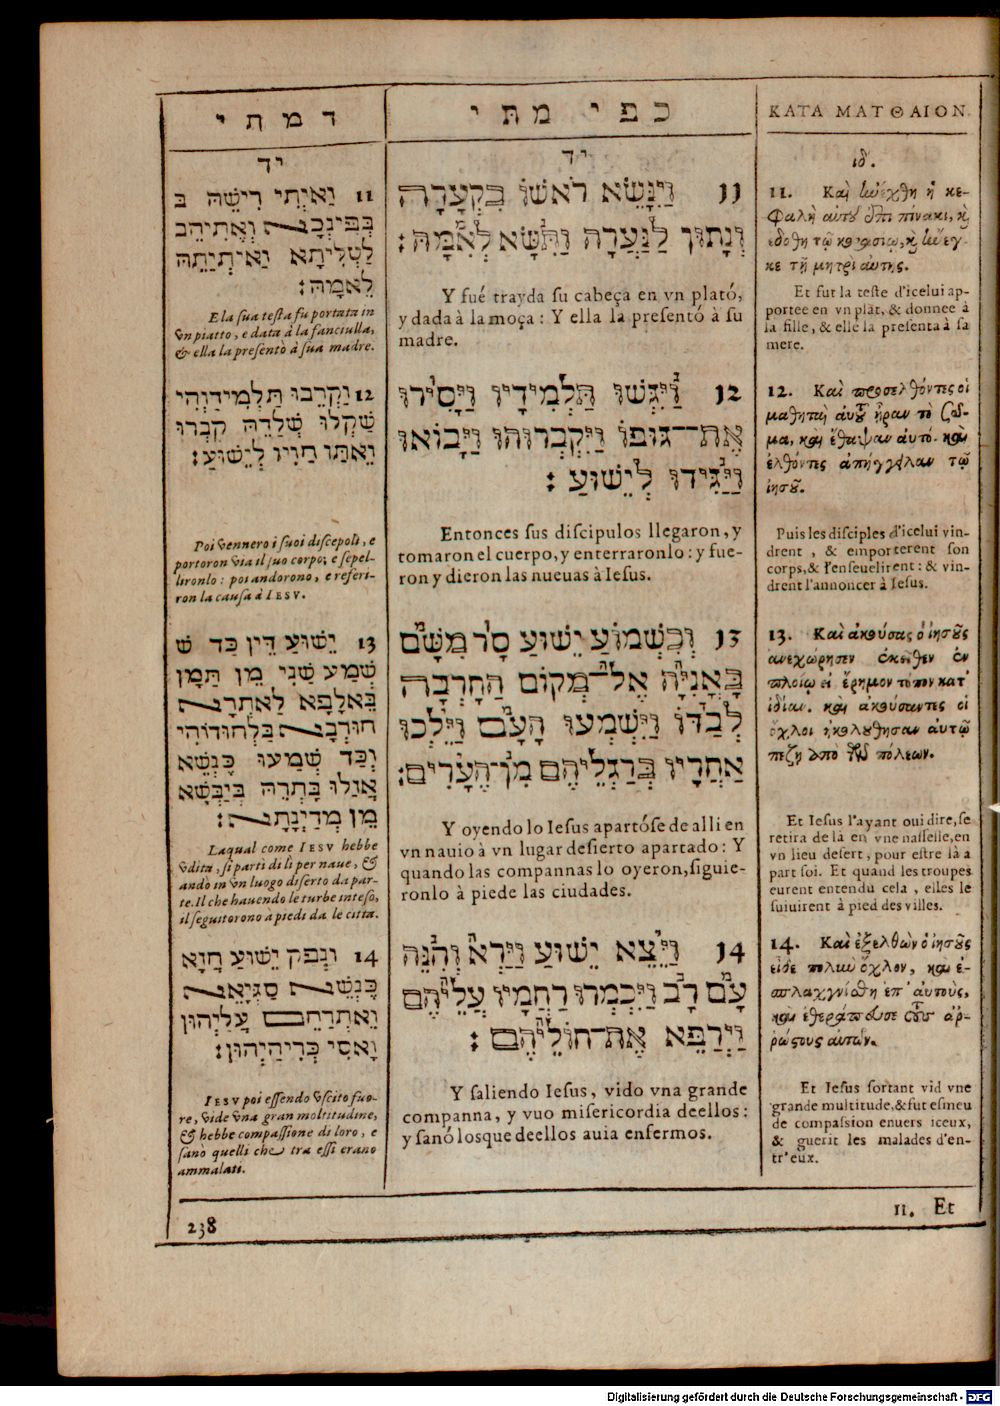 ד מ ת י
יד
11 וַאיְתִי רִישֵׁהּ בּ
בְּפִינְכָּא וְאֶתִיהֵב
לַטְלִיתָא וַאיְתְיַתֵהּ
לֵאמָהּ׃
E la sua testa fu portata in
vn piatto, e data à la fanciulla,
& ella la presentò à sua madre.
12 וַקְרֵבוּ תַּלְמִידַוְהִי
שְׁקַלוּ שְׁלַדֵהּ קְבַרוּ
וֵאתַוּ חַוִיו לְיֵשׁוּעַ׃
Poi vennero i suoi discepoli, e
portoron via il suo corpo; e sepel-
lironlo: poi andorono, e referi-
ron la causa à IESV.
13 יֵשׁוּעַ דֵּין כַּד שׁ
שְׁמַע שַׁנִי מֵן תַּמָן
בֵּאלְפָא לְאַתְרָא
חוּרְבָּא בַּלְחוּדוֹהִי
וְכַד שְׁמַעוּ כֶּנְשֵׁא
אֲזַלוּ בָּתְרֵהּ בְּיַבְשָׁא
מֵן מְדִינָתָא׃
Laqual come IESV hebbe
vdita, si parti di lì per naue, &
andò in vn luogo diserto da par-
te. Il che hauendo le turbe inteso,
il seguitorono a piedi da le città.
14 וַנְפַק יֵשׁוּעַ חֲזָא
כֶּנְשֵׁא סַגִּיאֵא
וֵאתְרַחַם עֲלֵיהוּן
וַאסִי כְּרִיהַיְהוּן׃
IESV poi essendo vscito fuo-
re, vide vna gran moltitudine,
& hebbe compassione di loro, e
sanò quelli che tra essi erano
ammalati.
238
כ פ י מ ת י
יד
11 וַיִּנָּשֵׂא רֹאשׁוֹ בִּקְעָרָה
וְנָתוּן לַנַּעֲרָה וַתִּשָּׂא לְאִמָּהּ׃
Y fué trayda su cabeça en vn plató,
y dada à la moça: Y ella la presentó à su
madre.
12 וַיִּגְּשׁוּ תַּלְמִידָיו וַיָּסִירוּ
אֶת־גּוּפוֹ וַיִּקְבְּרוּהוּ וַיָּבוֹאוּ
וַיַּגִּידוּ לְיֵשׁוּעַ׃
Entonces sus discipulos llegaron, y
tomaron el cuerpo, y enterraronlo: y fue-
ron y dieron las nueuas à Iesus.
13 וְכִשְׁמוֹעַ יֵשׁוּעַ סָר מִשָּׁם
בָּאֳנִיָּה אֶל־מְקוֹם הַחָרְבָה
לְבַדּוֹ וַיִּשְׁמְעוּ הָעָם וַיֵּלְכוּ
אַחֲרָיו בְּרַגְלֵיהֶם מִן־הֶעָרִים׃
Y oyendo lo Iesus apartóse de alli en
vn nauio à vn lugar desierto apartado: Y
quando las compannas lo oyeron, siguie-
ronlo à piede las ciudades.
14 וַיֵּצֵא יֵשׁוּעַ וַיַּרְא וְהִנֵּה
עַם רָב וַיִּכְמְרוּ רַחֲמָיו עֲלֵיהֶם
וַיְרַפֵּא אֶת־חוֹלֵיהֶם׃
Y saliendo Iesus, vido vna grande
companna, y vuo misericordia deellos:
y sanó losque deellos auia enfermos.
ΚΑΤΑ ΜΑΤΘΑΙΟΝ.
ιδ.
11. Καὶ ἠνέχθη ἡ κε-
φαλὴ αὐτοῦ ἐπὶ πίνακι, καὶ
ἐδόθη τῷ κορασίῳ, καὶ ἤνεγ-
κε τῇ μητρὶ αὐτῆς.
Et fut la teste d'icelui ap-
portee en vn plat, & donnee à
la fille, & elle la presenta à sa
mere.
12. Καὶ προσελθόντες οἱ
μαθηταὶ αὐτοῦ ἦραν τὸ σῶ-
μα, καὶ ἔθαψαν αὐτό. καὶ
ἐλθόντες ἀπήγγειλαν τῷ
ἰησοῦ.
Puis les disciples d'icelui vin-
drent, & emporterent son
corps, & l'enseuelirent: & vin-
drent l'annoncer à Iesus.
13. Καὶ ἀκούσας ὁ ἰησοῦς
ἀνεχώρησεν ἐκεῖθεν ἐν
πλοίῳ εἰ ἔρημον τόπον κατ'
ἰδίαν. καὶ ἀκούσαντες οἱ
ὄχλοι ἠκολούθησαν αὐτῷ
πεζῇ ἀπὸ τῶν πόλεων.
Et Iesus l'ayant oui dire, se
retira de là en vne nasselle, en
vn lieu desert, pour estre là a
part soi. Et quand les troupes
eurent entendu cela, elles le
suiuirent à pied des villes.
14. Καὶ ἐξελθὼν ὁ ἰησοῦς
εἶδε πολὺν ὄχλον, καὶ ἐ-
σπλαχνίσθη ἐπ' αὐτοὺς,
καὶ ἐθεράπευσε τοὺς ἀρ-
ρώστους αὐτῶν.
Et Iesus sortant vid vne
grande multitude, & fut esmeu
de compassion enuers iceux,
& guerit les malades d'en-
tr'eux.
11. Et
Digitalisierung gefördert durch die Deutsche Forschungsgemeinschaft - DFG